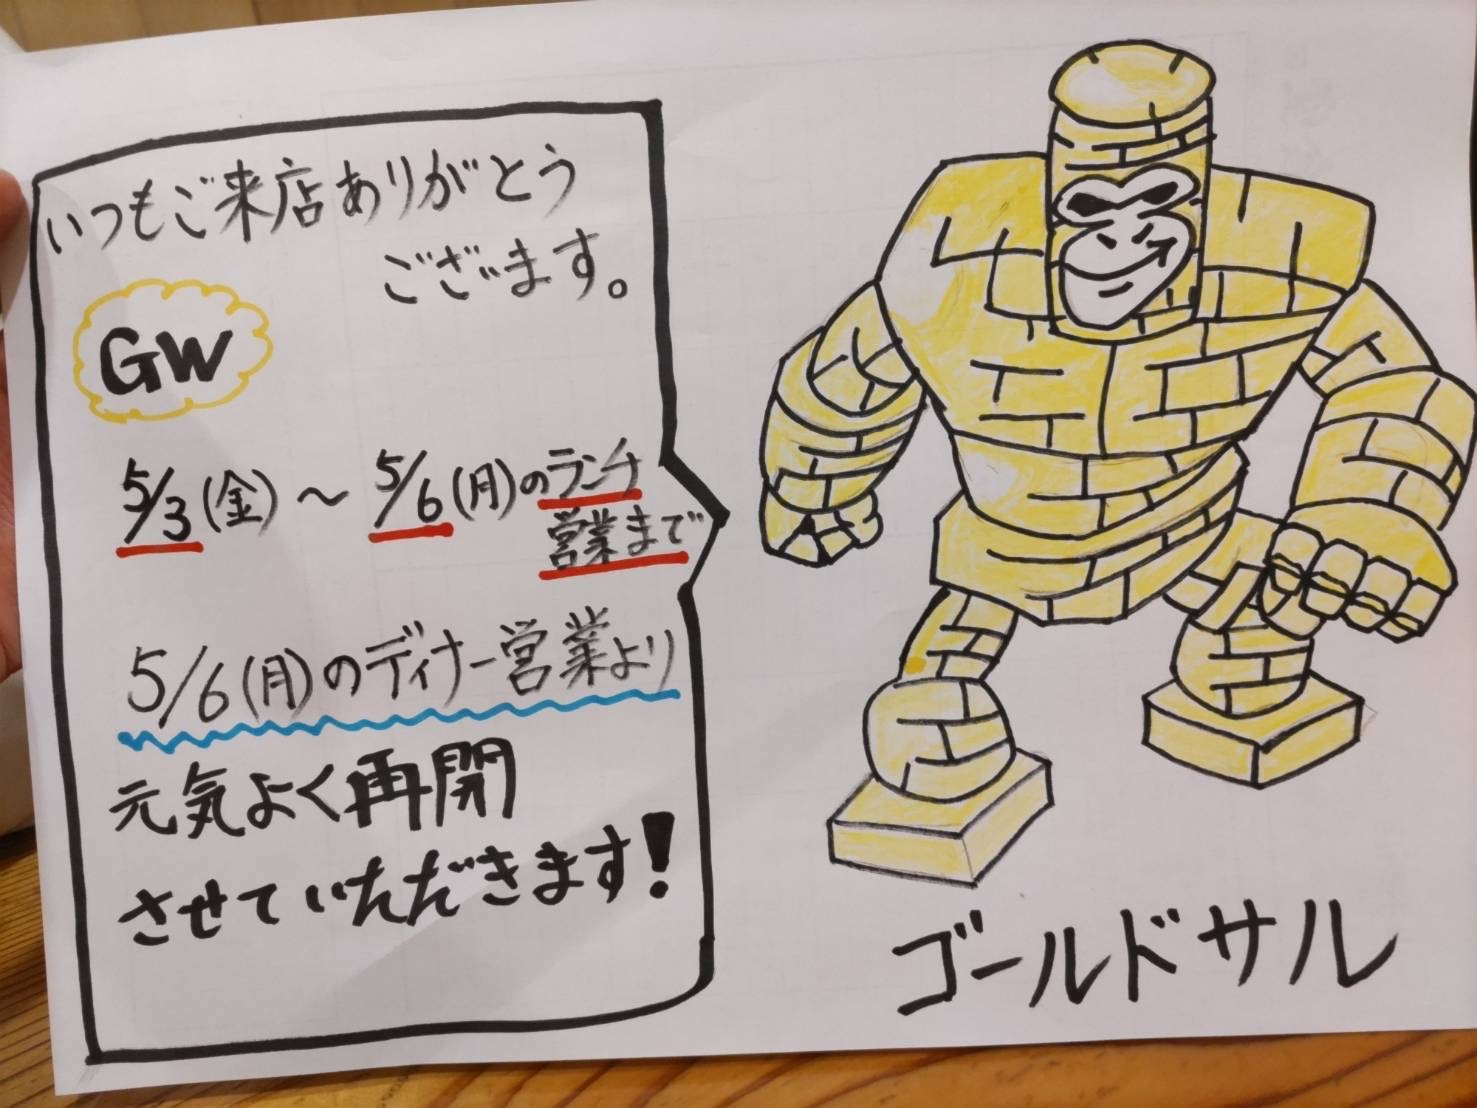 いつもご来店ありがとう
ございます。
GW
5/3(金)～5/6(月)のランチ
営業まで
5/6(月)のディナー営業より
元気よく再開
させていただきます!
ゴールドサル